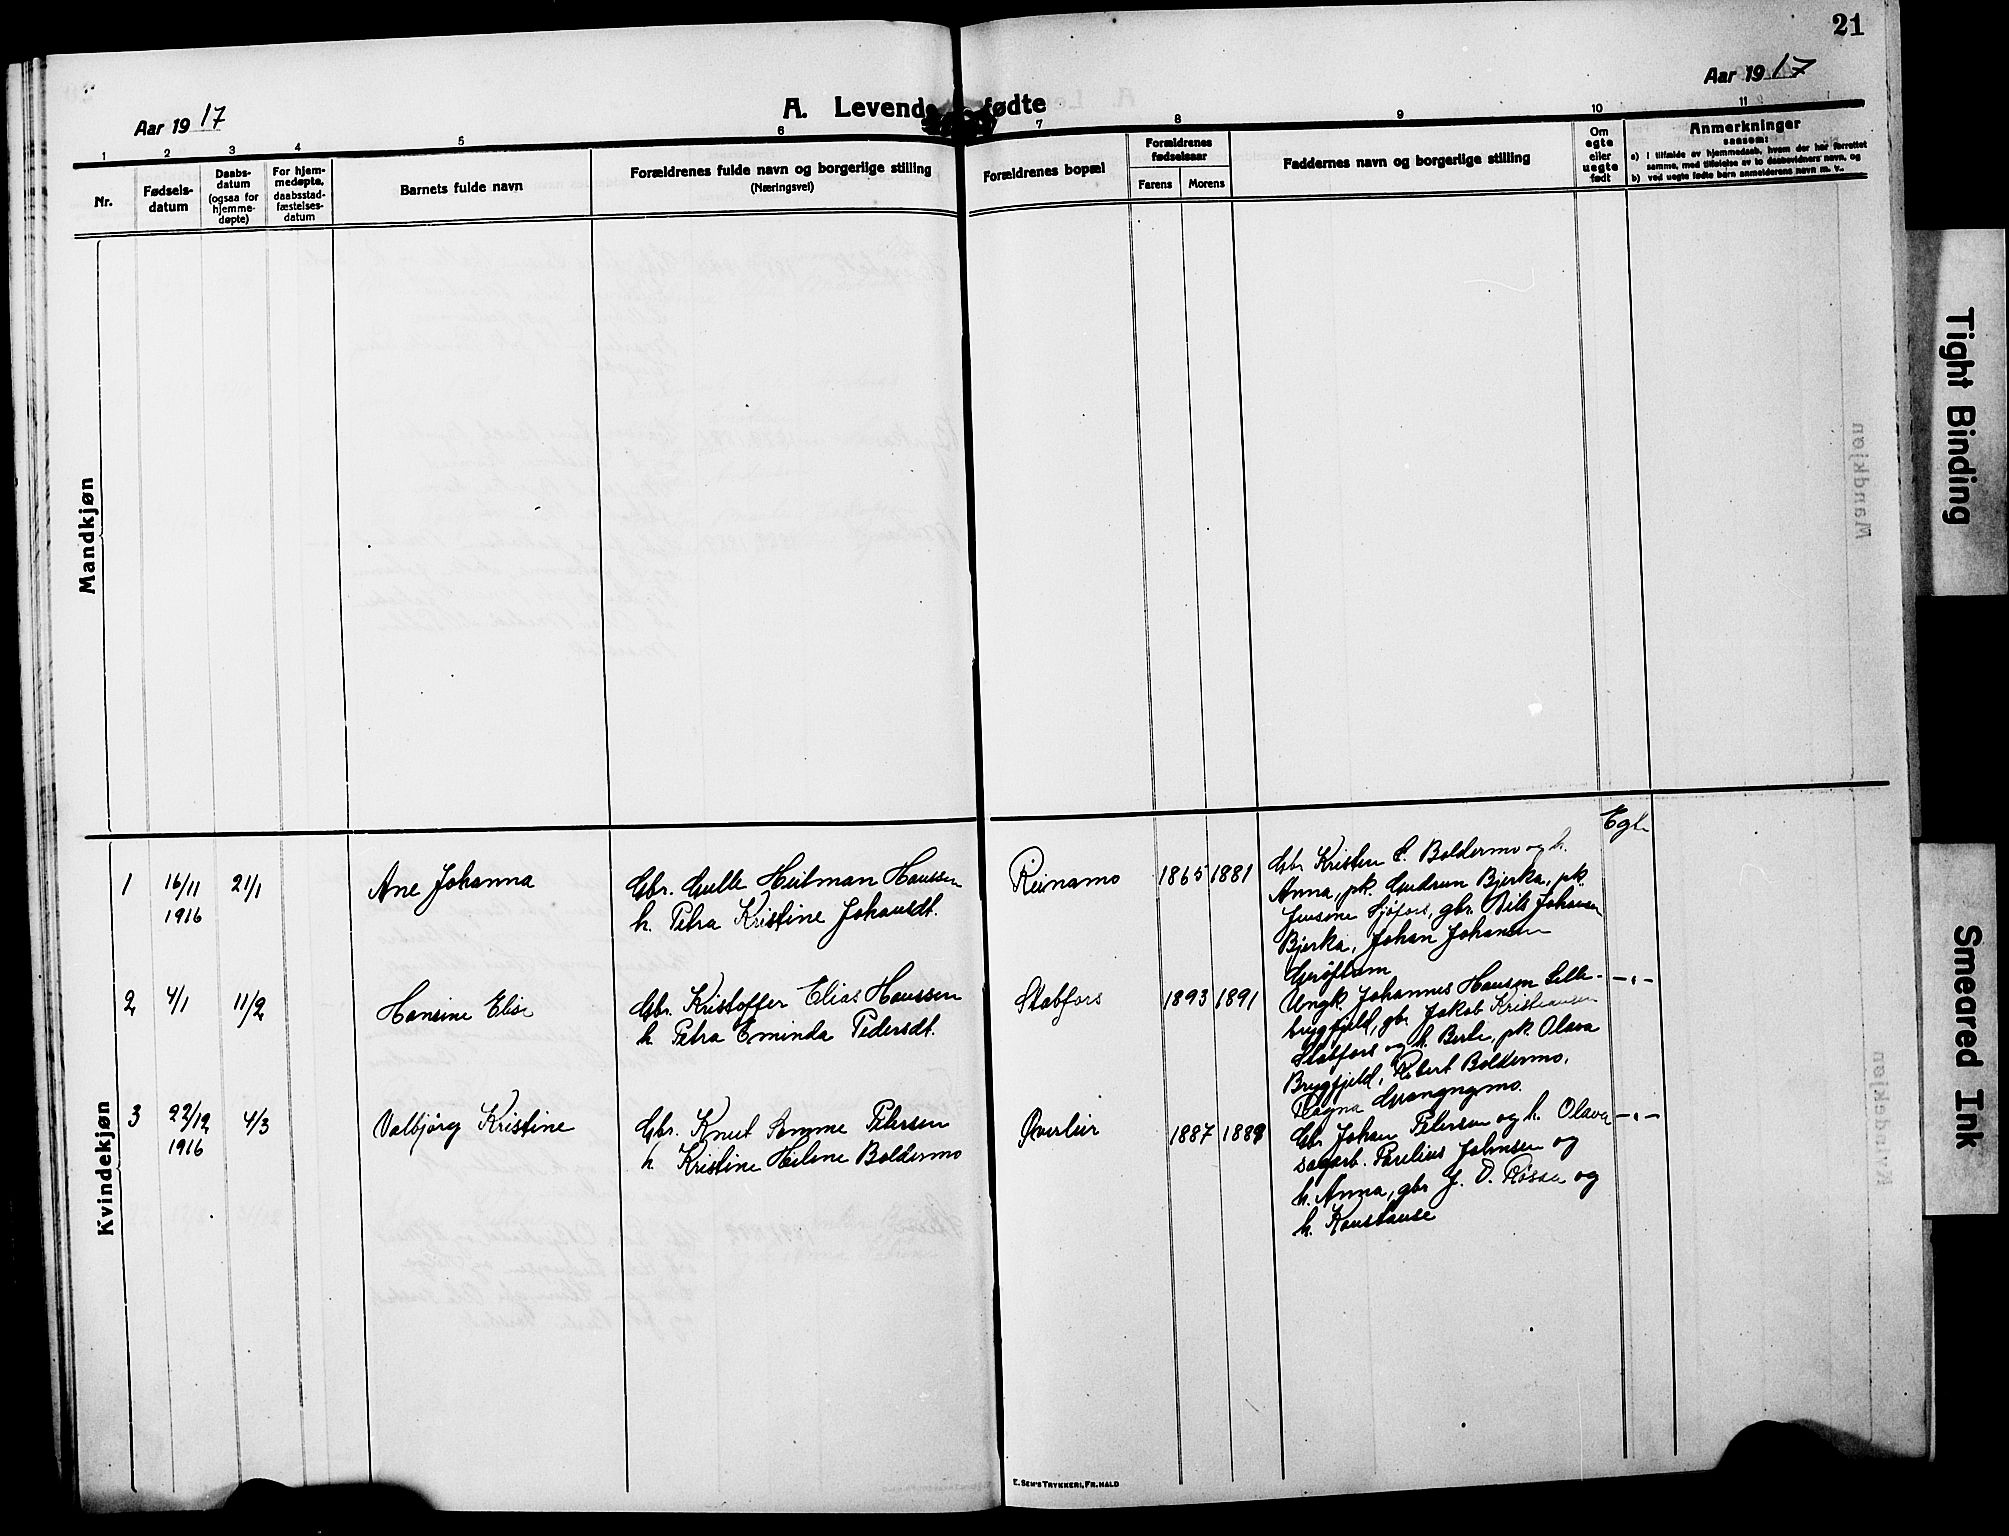 21
Aar 1917
A. Levende fødte
Aar 1917
1 2 3 4 5 6 7 8 9 10 11
Nr.
Fødsels-
datum
Daabs-
datum
(ogsaa for
hjemme-
døpte)
For hjem-
medøpte,
daabsstad-
fæstelses-
datum
Barnets fulde navn
Forældrenes fulde navn og borgerlige stilling
(Næringsvei)
Forældrenes bopæl
Forældrenes
fødselsaar
Farens
Morens
Faddernes navn og borgerlige stilling
Om
egte
eller
uegte
født
Anmerkninger
saasom:
a) i tilfælde av hjemmedaab, hvem der har forrettet
samme, med tilføielse av to daabsvidners navn, og
b) ved uegte fødte barn anmelderens navn m. v.
Mandkjøn
Kvindekjøn
1
16/11
1916
21/1
Ane Johanna
Gbr. Gulle Heitman Hanssen
h. Petra Kristine Johansdt.
Reinamo
1865
1881
Gbr Kristen C. Boldermo og h.
Anna, pk. Gudrun Bjerka, pk.
Jensine Sjøfors, gbr. Nils Johansen
Bjerka, Johan Johansen
Grøftrem
Egte
2
4/1
11/2
Hansine Elise
Gbr. Kristoffer Elias Hanssen
h. Petra Eminda Pedersdt.
Stabfors
1893
1891
Ungk. Johannes Hansen Lille-
brygfjeld, gbr Jakob Kristiansen
Stabfors og h. Berte, pk. Olava
Brygfjeld, Robert Boldermo,
Ragna
-"-
3
22/12
1916
4/3
Valbjørg Kristine
Gbr. Knut Somme Petersen
h. Kristine Helene Boldermo
Øverleir
1887
1889
Gbr Johan Petersen og h. Olava
sagarb. Parelius Johnsen og
h. Anna, gbr J. O. Røssaa og
h. Konstanse
-"-
E. Sem's Trykkeri, Fr.hald
Tight Binding
Smeared Ink